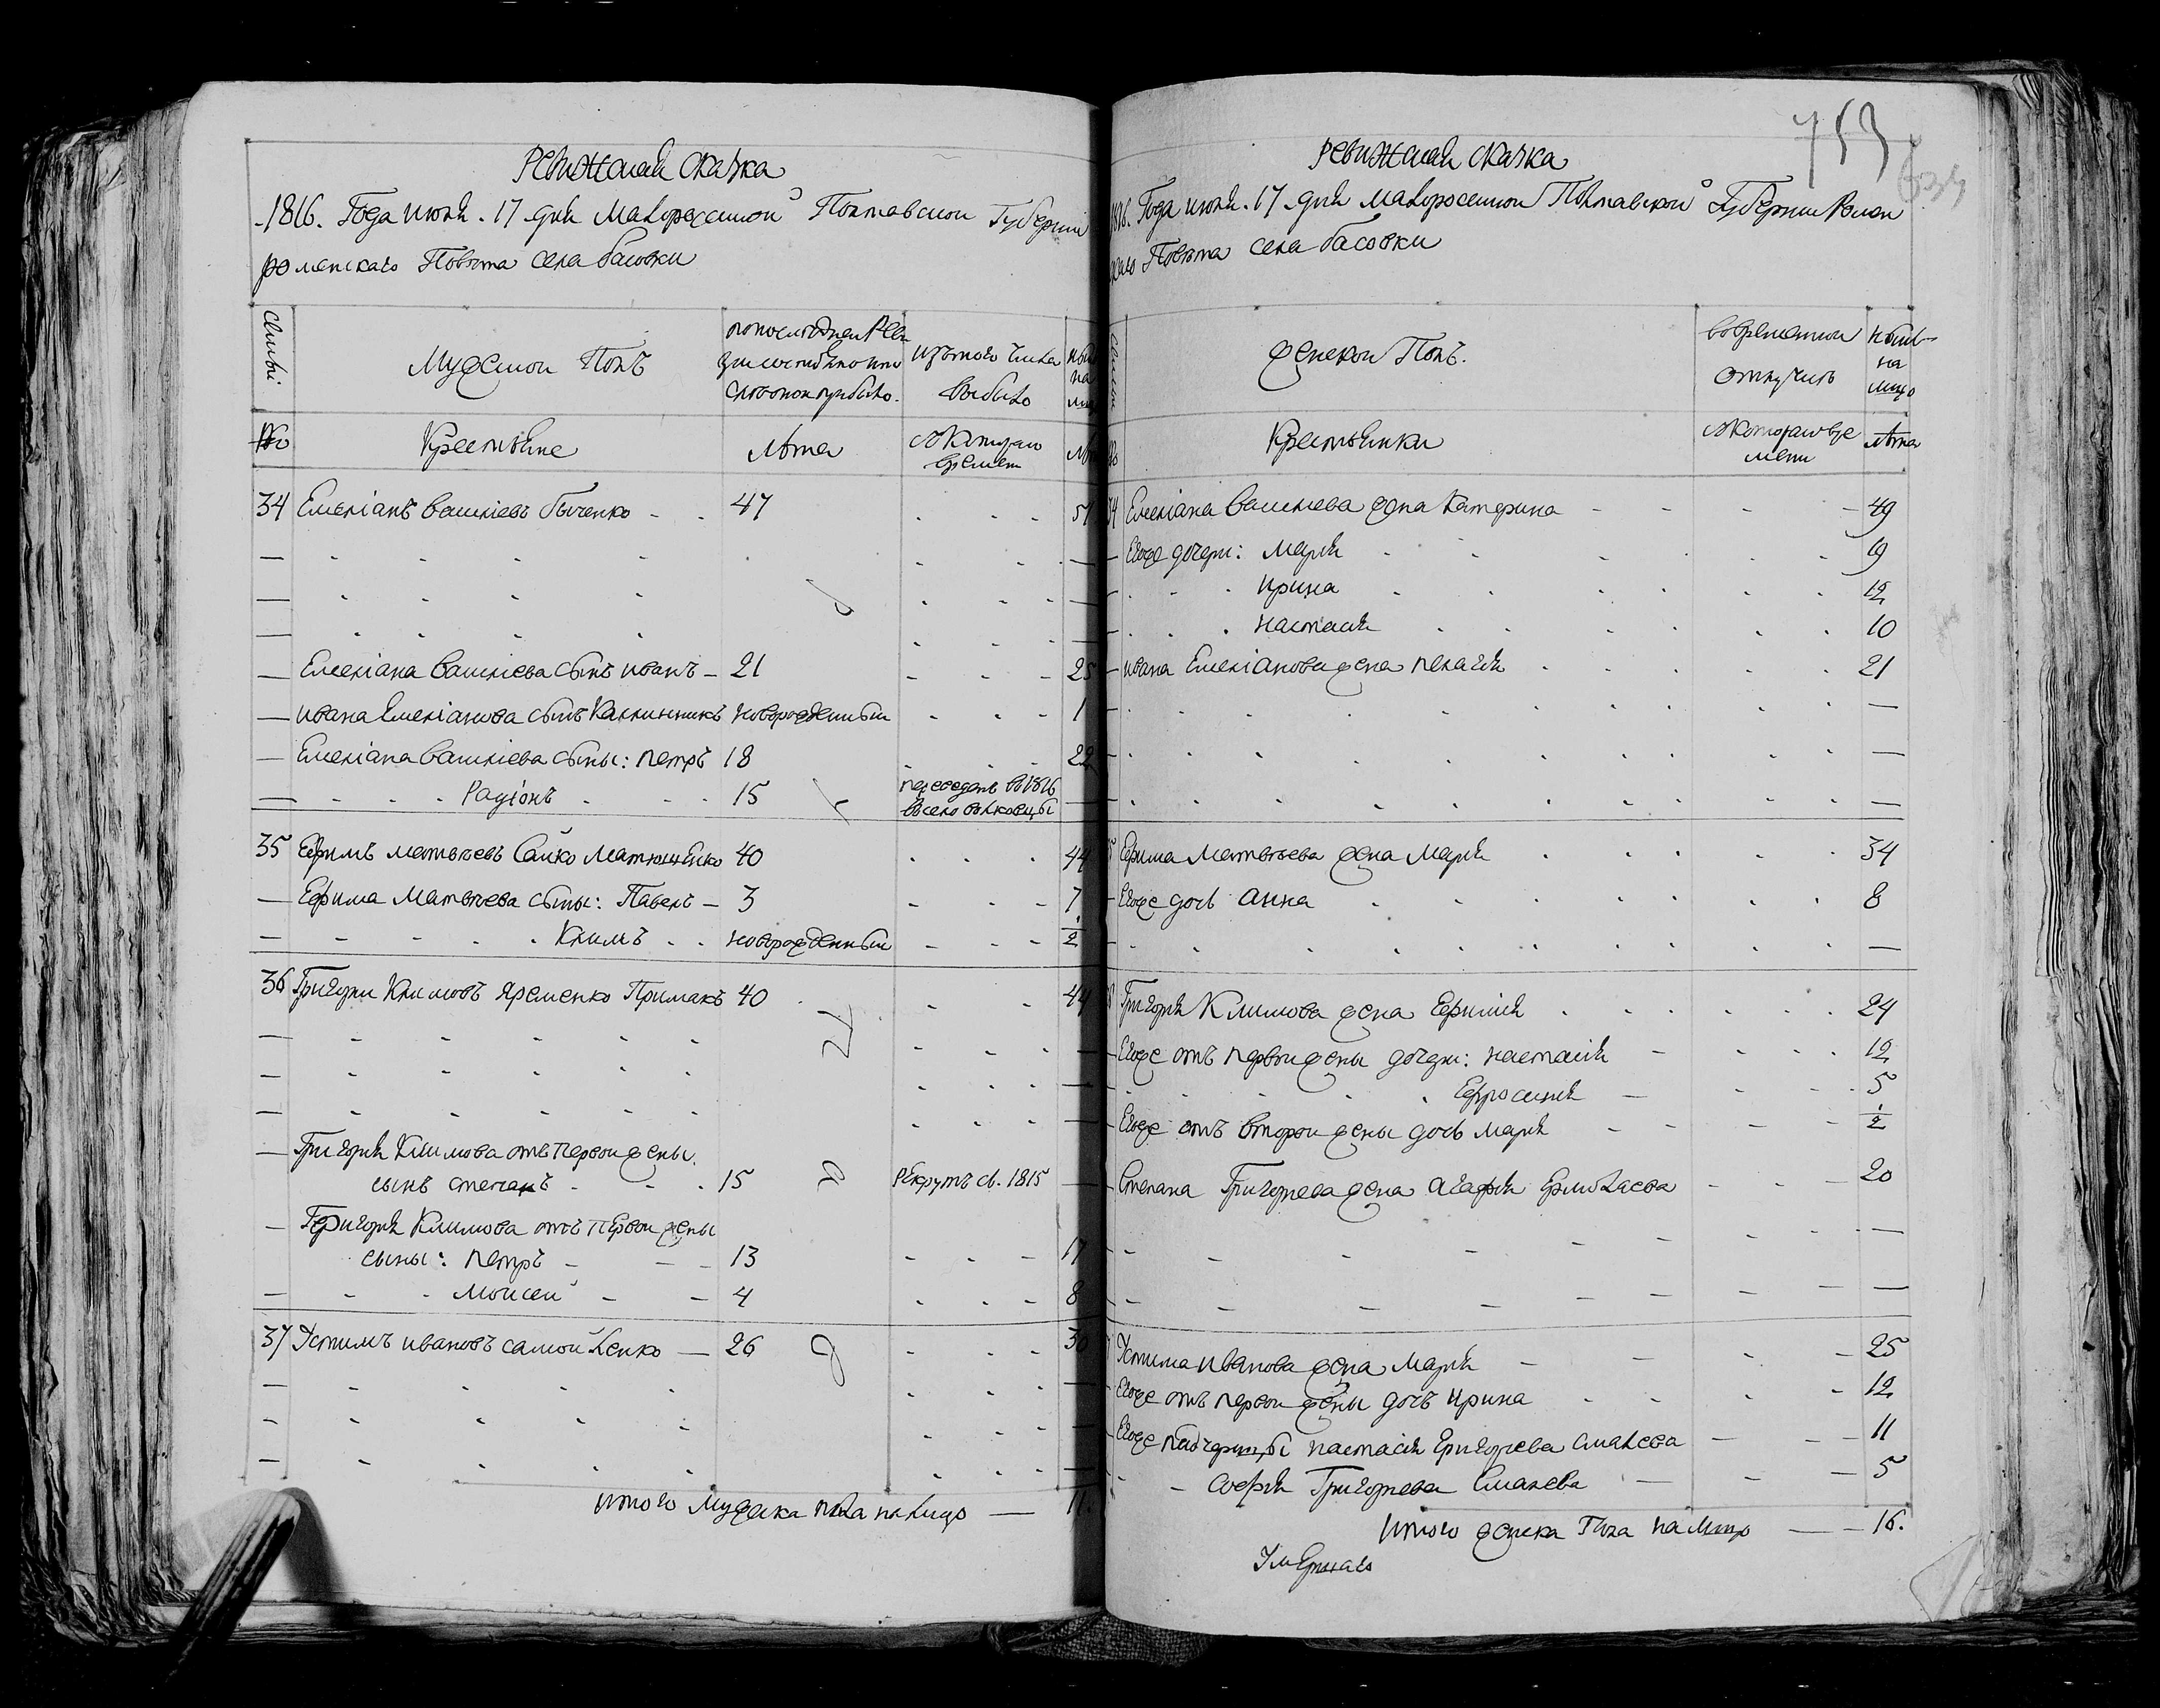 Ревизская сказка
1816. Года июня. 17 дня Малороссийской Полтавской Губерніи
роменскаго Повѣта села басовки
Семьи
Мужескои Полъ
попоследней Реви
зіи состояло и
после того прибыло.
Изътого числа
выбыло
Нынѣ
на
лицо
№
Крестьяне
Лѣта
Съкотораго
времени
Лѣта
34 Емеліанъ василіевъ быченко - - 47 - - - 51
Емеліана василіева сынъ иванъ - 21 - - - 25
ивана Емеліанова сынъ Каллинникъ новорожденныи - - - 1
Емеліана василіева сыны: петръ 18 - - - 22
Радіонъ - - - 15 переведенъ в 1816
в село
35 Ефимъ матвѣевъ Сайко Матющенко 40 - - - 44
Ефима Матвѣева сыны: Павелъ - 3 - - - 7
Климъ - - новорожденныи - - - 1/2
36 Григорій Климовъ Яременко Примакъ 40 - - 44
Григорія Климова отъ первои жены
сынъ степанъ - - - 15 Рекрутъ в. 1815 —
Григорія Климова отъ первои жены
сыны: петръ - - - 13 - - - 17
Моисей - - 4 - - - 8
37 Устимъ ивановъ самойленко — 26 - - - 30
итого мужеска пола налицо — 11.
753
Ревизская сказка
1816. Года июня. 17 дня Малоросейской Полтавской Губерніи Ромен
скаго Повѣта села басовки
Семьи
Женскои Полъ.
вовременной
отлучкѣ
Нынѣ
на
лицо
№
Крестьянки
Съкотораго вре
мени
лѣта
34 Емеліана василіева жена Катерина - - - 49
Егоже дочери: Марія - - - 19
ирина - - - 12
настасія - - - 10
ивана Емеліанова жена пелагія - - - 21
35 Ефима Матвѣева жена Марія - - - 34
Егоже дочь анна - - - 8
36 Григорія Климова жена Ефимія - - - 24
Егоже отъ первои жены дочери: настасія - - - 12
Ефросинія - - - 5
Егоже отъ второи жены дочь марія - - - 1/2
Степана Григорьева жена агафія Ермолаева - - - 20
37 Устима иванова жена Марія - - - 25
Егоже отъ первои жены дочь ирина - - - 12
Егоже падчерицы настасія Григорьева - - 11
софія Григорьева - - 5
итого женска Пола на лицо — 16.